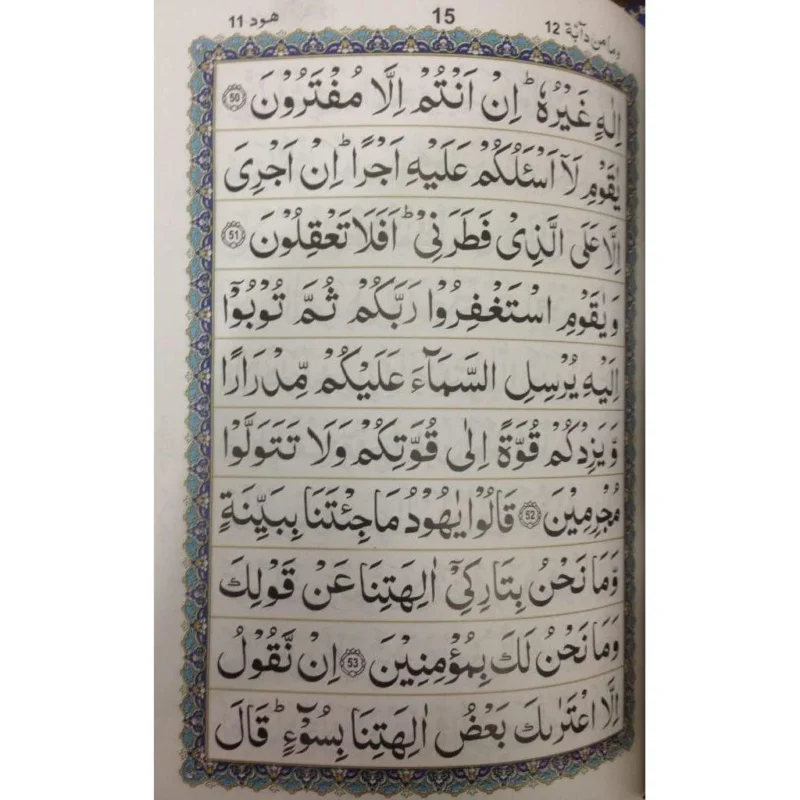 وما من دآبة 12 15 هود 11
اِلٰهٍ غَيْرُهٗ ؕ اِنْ اَنْتُمْ اِلَّا مُفْتَرُوْنَ 50
يٰقَوْمِ لَاۤ اَسْـَٔلُكُمْ عَلَيْهِ اَجْرًا ؕ اِنْ اَجْرِىَ
اِلَّا عَلَى الَّذِىْ فَطَرَنِىْ ؕ اَفَلَا تَعْقِلُوْنَ 51
وَيٰقَوْمِ اسْتَغْفِرُوْا رَبَّكُمْ ثُمَّ تُوْبُوْۤا
اِلَيْهِ يُرْسِلِ السَّمَآءَ عَلَيْكُمْ مِّدْرَارًا
وَّيَزِدْكُمْ قُوَّةً اِلٰى قُوَّتِكُمْ وَلَا تَتَوَلَّوْا
مُجْرِمِيْنَ 52 قَالُوْا يٰهُوْدُ مَا جِئْتَنَا بِبَيِّنَةٍ
وَّمَا نَحْنُ بِتَارِكِىْۤ اٰلِهَتِنَا عَنْ قَوْلِكَ
وَمَا نَحْنُ لَكَ بِمُؤْمِنِيْنَ 53 اِنْ نَّقُوْلُ
اِلَّا اعْتَرٰىكَ بَعْضُ اٰلِهَتِنَا بِسُوْٓءٍ ؕ قَالَ